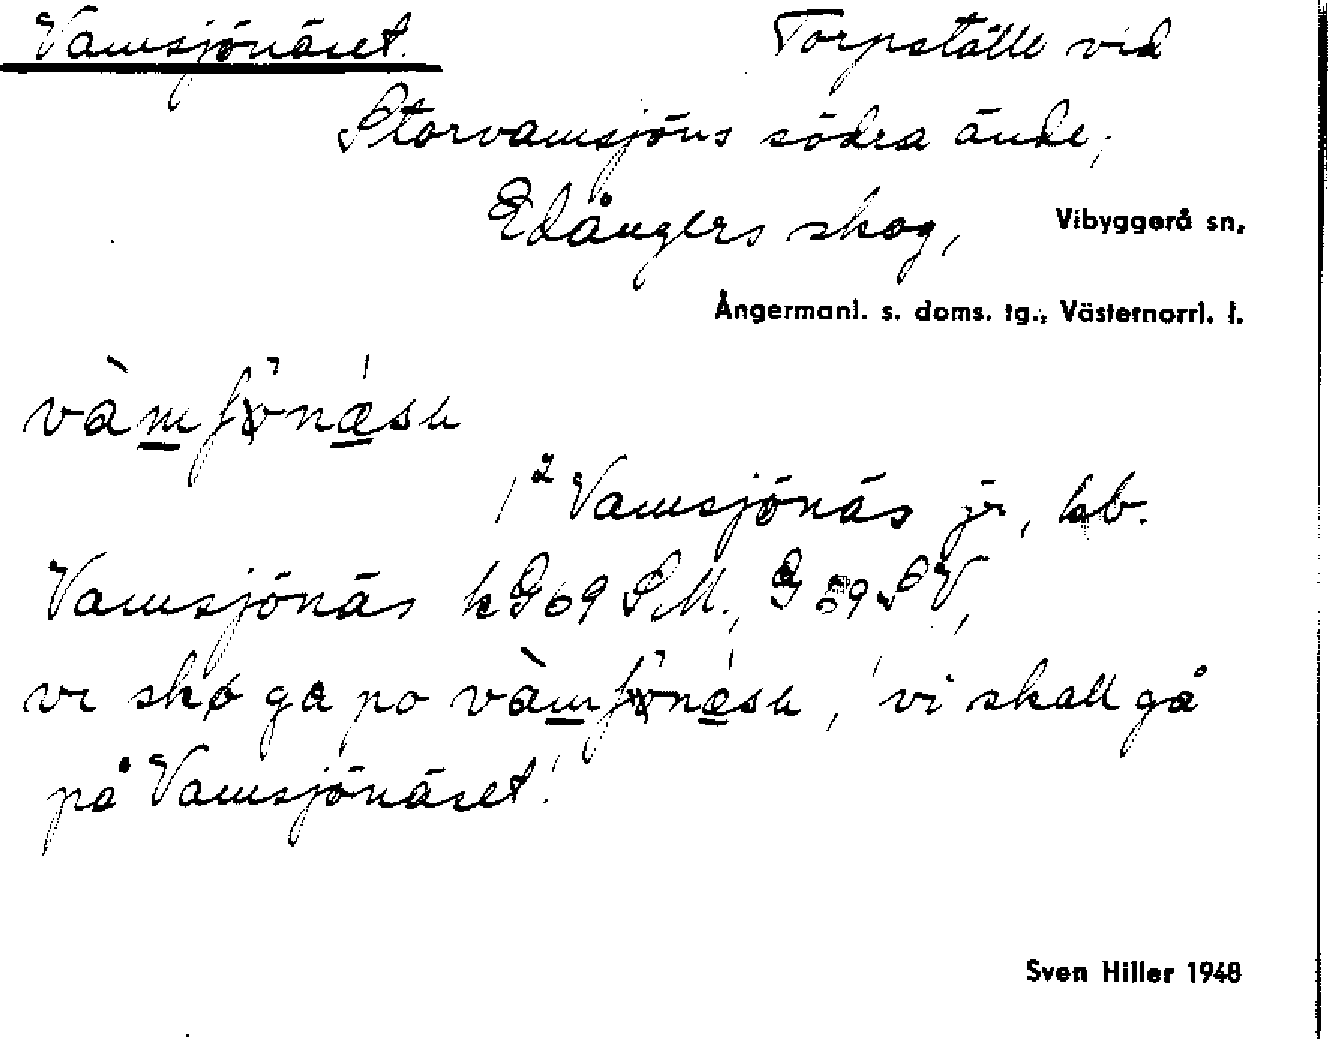 Vamsjönäset. Torpställe vid
Storvamsjöns södra ände,
Edångers skog, Vibyggerå sn,
Ångermanl. s. doms. tg., Västernorrl. l.
1² Vamsjönäs jr, hb.
Vamsjönäs k G69 SM., G 59 SV,
vi skø ga po vàmʃönäsa, 'vi skall gå
på Vamsjönäset'.
Sven Hiller 1948